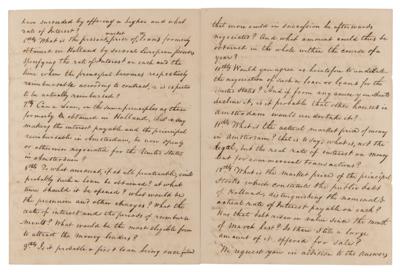 have succeeded by offering a higher and what
rate of Interest?
6th What is the present market price of Loans formerly
obtained in Holland by several European powers
specifying the rate of Interest on each and the
time when the principal becomes respectively
reimbursable according to contract, or is expected
to be actually reimbursed?
7th Can a Loan, on the same principles as those
formerly obtained in Holland, but
making the interest payable and the principal
reimbursable in Amsterdam, be now opened
or otherwise negotiated for the United States
in Amsterdam?
8th To what amount, if at all practicable, could
probably such a Loan be obtained? At what
time should it be opened? What would be
the premium and other charges? What the
rate of interest and the periods of reimburse
ments? What would be the most eligible form
to attract the money lenders?
9th Is it probable a first loan being successful
that more could in succession be afterwards
negotiated? And what amount could thus be
obtained in the whole within the course of a
year?
10th Would you agree as heretofore to undertake
the negociation of such a Loan or Loans for the
United States? And if from any cause you should
decline it, is it probable that other houses in
Amsterdam would undertake it?
11th What is the actual market price of money
in Amsterdam? that is to say what is, not the
legal, but the real rate of interest on money
lent for commercial transactions?
12th What is the market price of the principal
Stocks which constitute the public debt
of Holland, distinguishing the nominal &
actual rate of Interest payable on each?
Has that debt risen in value since the month
of March last? Is there still a large
amount of it offered for sale?
We request you in addition to the answers